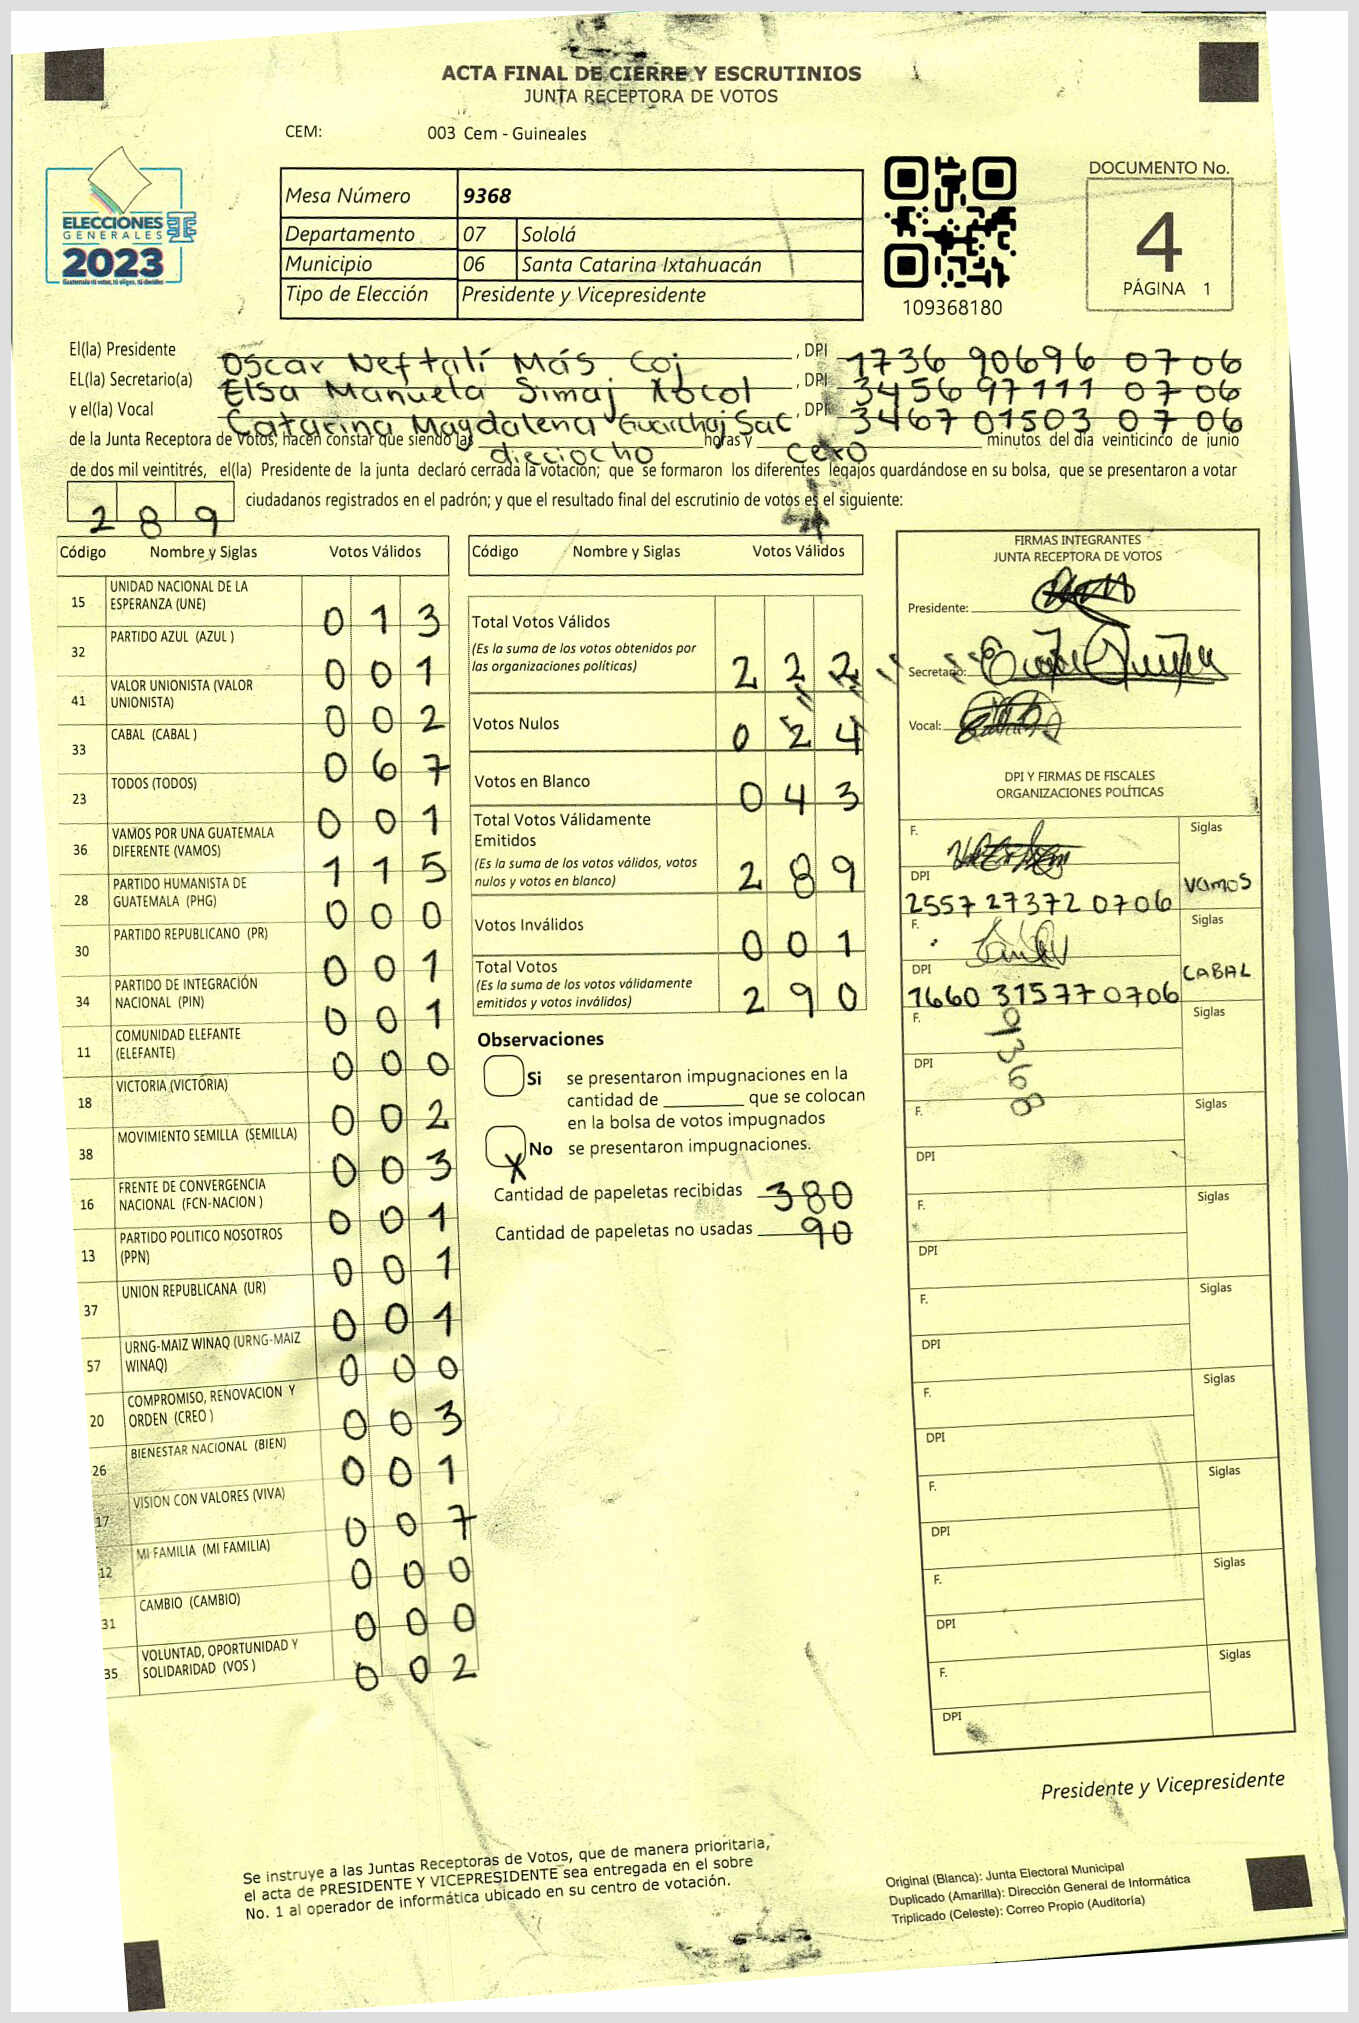 ACTA FINAL DE CIERRE Y ESCRUTINIOS
JUNTA RECEPTORA DE VOTOS
CEM: 003 Cem - Guineales
ELECCIONES
GENERALES
2023
Guatemala tú votas, tú eliges, tú decides
Mesa Número 9368
Departamento 07 Sololá
Municipio 06 Santa Catarina Ixtahuacán
Tipo de Elección Presidente y Vicepresidente
109368180
DOCUMENTO No.
4
PÁGINA 1
El(la) Presidente Oscar Neftalí Más Coj, DPI 1736 90696 0706
EL(la) Secretario(a) Elsa Manuela Simaj Xocol, DPI 3456 97111 0706
y el(la) Vocal Catarina Magdalena Guarchaj Sac, DPI 3467 01503 0706
de la Junta Receptora de Votos, hacen constar que siendo las dieciocho horas y cero minutos del día veinticinco de junio
de dos mil veintitrés, el(la) Presidente de la junta declaró cerrada la votación; que se formaron los diferentes legajos guardándose en su bolsa, que se presentaron a votar
289 ciudadanos registrados en el padrón; y que el resultado final del escrutinio de votos es el siguiente:
Código Nombre y Siglas Votos Válidos
15 UNIDAD NACIONAL DE LA ESPERANZA (UNE) 013
32 PARTIDO AZUL (AZUL ) 001
41 VALOR UNIONISTA (VALOR UNIONISTA) 002
33 CABAL (CABAL ) 067
23 TODOS (TODOS) 001
36 VAMOS POR UNA GUATEMALA DIFERENTE (VAMOS) 115
28 PARTIDO HUMANISTA DE GUATEMALA (PHG) 000
30 PARTIDO REPUBLICANO (PR) 001
34 PARTIDO DE INTEGRACIÓN NACIONAL (PIN) 001
11 COMUNIDAD ELEFANTE (ELEFANTE) 000
18 VICTORIA (VICTORIA) 002
38 MOVIMIENTO SEMILLA (SEMILLA) 003
16 FRENTE DE CONVERGENCIA NACIONAL (FCN-NACION ) 001
13 PARTIDO POLITICO NOSOTROS (PPN) 001
37 UNION REPUBLICANA (UR) 001
57 URNG-MAIZ WINAQ (URNG-MAIZ WINAQ) 000
20 COMPROMISO, RENOVACION Y ORDEN (CREO ) 003
26 BIENESTAR NACIONAL (BIEN) 001
17 VISION CON VALORES (VIVA) 007
12 MI FAMILIA (MI FAMILIA) 000
31 CAMBIO (CAMBIO) 000
35 VOLUNTAD, OPORTUNIDAD Y SOLIDARIDAD (VOS ) 002
Código Nombre y Siglas Votos Válidos
Total Votos Válidos
(Es la suma de los votos obtenidos por
las organizaciones políticas) 222
Votos Nulos 024
Votos en Blanco 043
Total Votos Válidamente
Emitidos
(Es la suma de los votos válidos, votos
nulos y votos en blanco) 289
Votos Inválidos 001
Total Votos
(Es la suma de los votos válidamente
emitidos y votos inválidos) 290
Observaciones
Si se presentaron impugnaciones en la
cantidad de ________ que se colocan
en la bolsa de votos impugnados
X No se presentaron impugnaciones.
Cantidad de papeletas recibidas 380
Cantidad de papeletas no usadas 90
FIRMAS INTEGRANTES
JUNTA RECEPTORA DE VOTOS
Presidente:
Secretario:
Vocal:
DPI Y FIRMAS DE FISCALES
ORGANIZACIONES POLÍTICAS
F. Siglas
DPI 2557 27372 0706 VAMOS
F. Siglas
DPI 1660 31577 0706 CABAL
F. Siglas
9368
DPI
F. Siglas
DPI
F. Siglas
DPI
F. Siglas
DPI
F. Siglas
DPI
F. Siglas
DPI
F. Siglas
DPI
F. Siglas
DPI
Presidente y Vicepresidente
Se instruye a las Juntas Receptoras de Votos, que de manera prioritaria,
el acta de PRESIDENTE Y VICEPRESIDENTE sea entregada en el sobre
No. 1 al operador de informática ubicado en su centro de votación.
Original (Blanca): Junta Electoral Municipal
Duplicado (Amarilla): Dirección General de Informática
Triplicado (Celeste): Correo Propio (Auditoría)